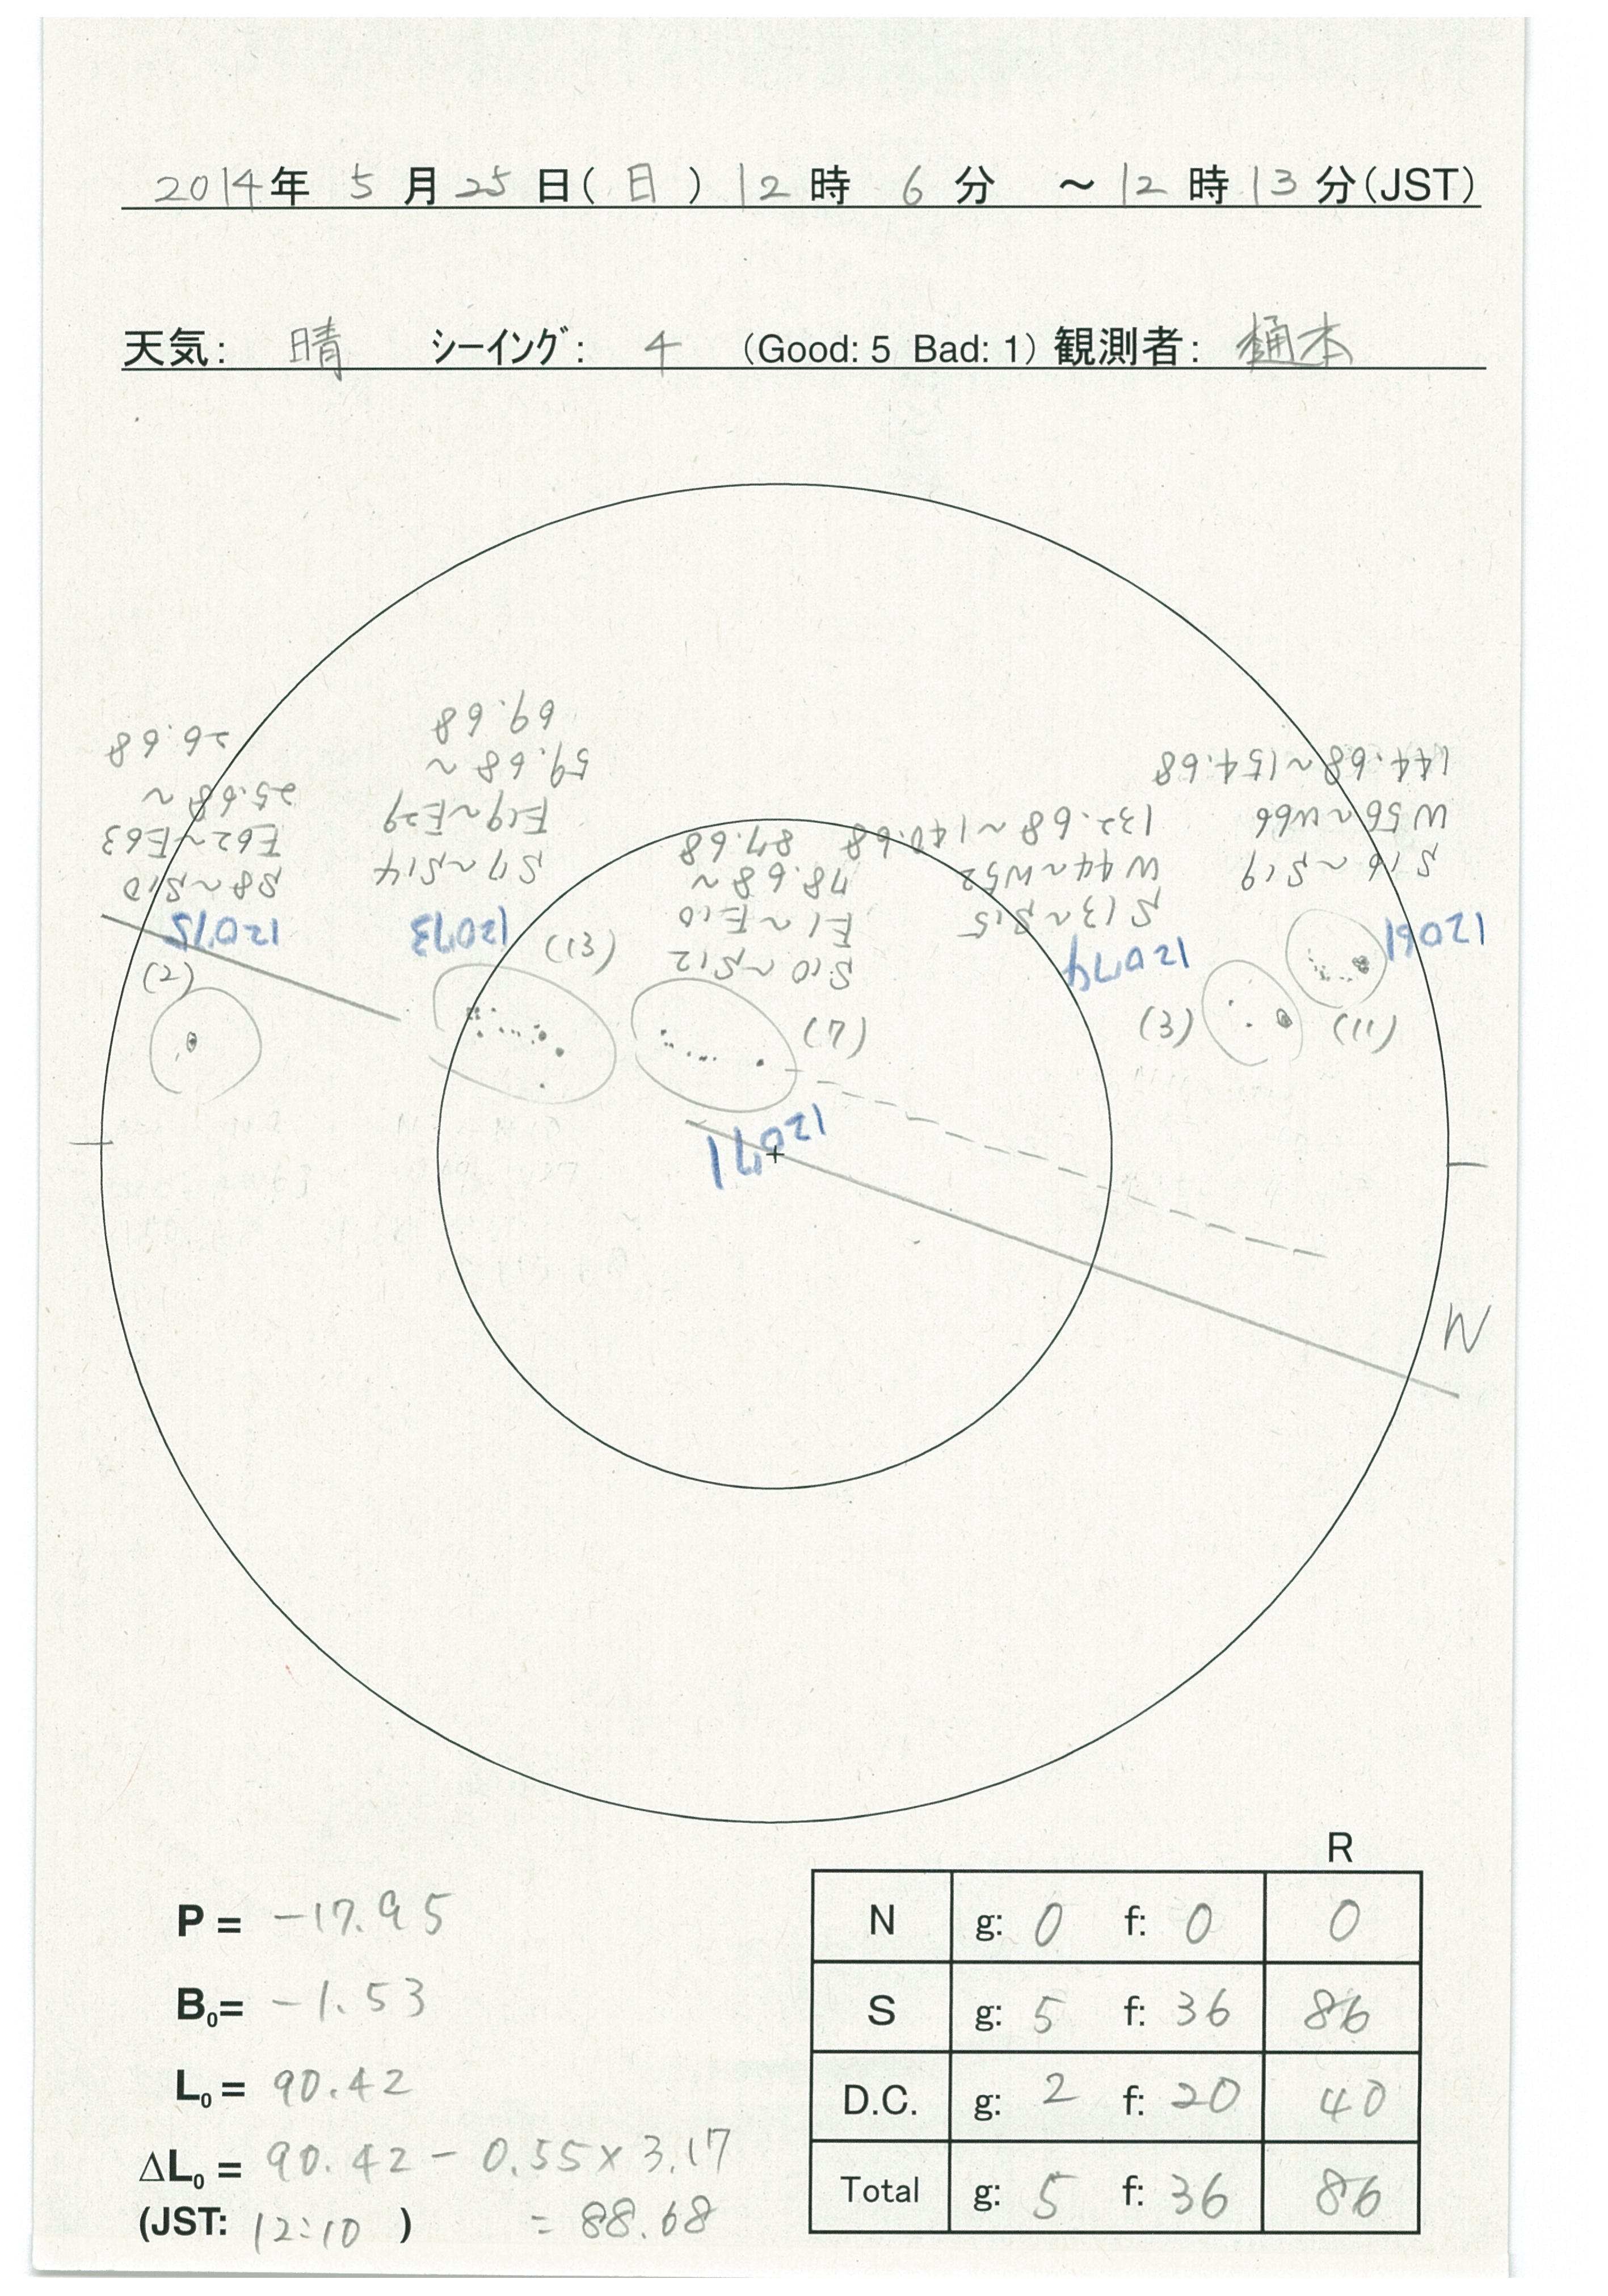 2014年 5月25日(日) 12時 6分 ～12時13分(JST)
天気: 晴 シーイング: 4 (Good: 5 Bad: 1) 観測者: 樋本
12075
(2)
S8~S10
E62~E63
25.68~
26.68
12073
(13)
S7~S14
E19~E29
59.68~
69.68
12071
(7)
S10~S12
E1~E10
78.68~
87.68
12079
(3)
S13~S15
W44~W52
132.68~140.68
12061
(11)
S16~S19
W56~W66
144.68~154.68
W
P = -17.95
B₀= -1.53
L₀= 90.42
ΔL₀= 90.42 - 0.55×3.17
(JST: 12:10 ) = 88.68
R
N g: 0 f: 0 0
S g: 5 f: 36 86
D.C. g: 2 f: 20 40
Total g: 5 f: 36 86